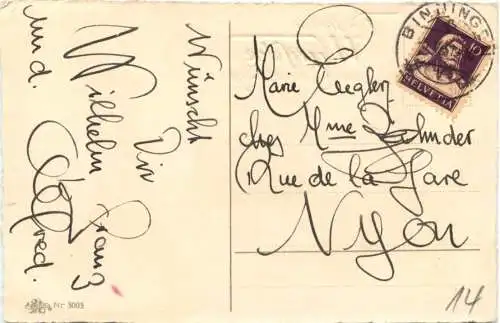 Wünscht
Dir
Wilhelm Franz
und.
Alfred.
Marie Ziegler
chez Mme Zehnder
Rue de la Gare
Nyon
BINNINGEN
10
HELVETIA
Nr 5003
14